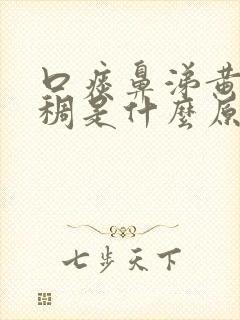 口痰鼻涕黄
稠是什麼原
七步天下